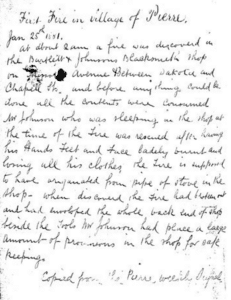 First Fire in village of Pierre.
Jan 25th 1881.
at about 2 am a fire was discovered in
the Bartlett & Johnson Blacksmith Shop
on Avenue Between Dakota and
Chapell Sts. and before anything could be
done all the contents were consumed
Mr Johnson who was sleeping in the shop at
the time of the Fire was rescued after having
his Hands Feet and Face badely burnt and
losing all his clothes, the fire is supposed
to have originated from pipe of stove in the
shop. when discovered the Fire had
and had enveloped the whole back end of shop
beside the Tools Mr Johnson had place a large
amount of provisions in the shop for safe
keeping.
Copied from Pierre, weekly